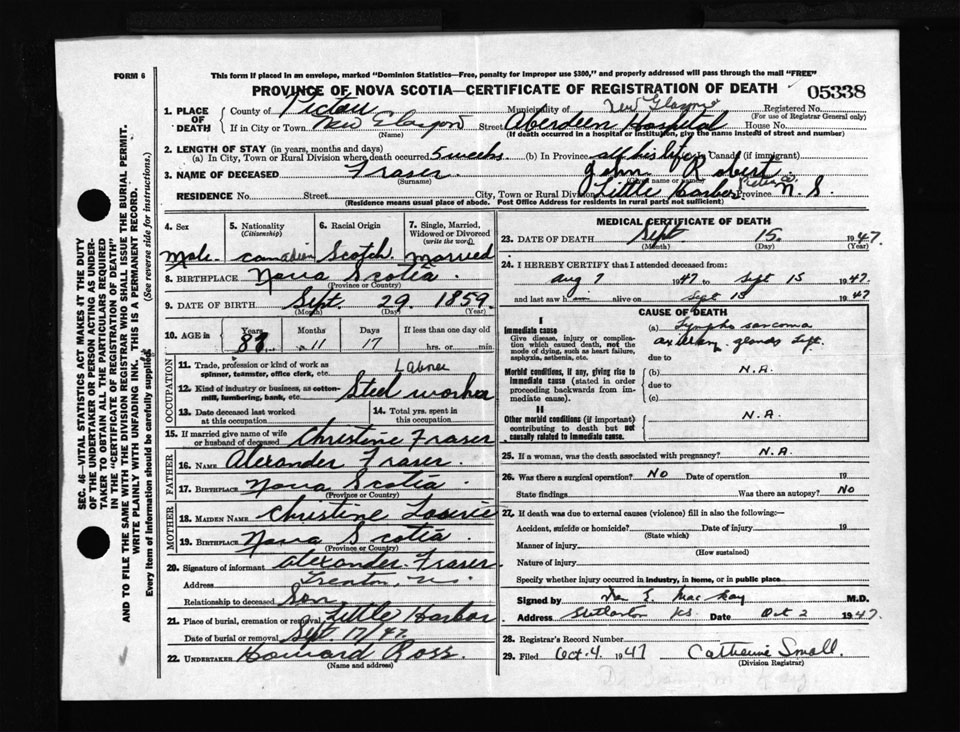 FORM 6
This form if placed in an envelope, marked "Dominion Statistics—Free, penalty for improper use $300," and properly addressed will pass through the mail "FREE"
PROVINCE OF NOVA SCOTIA—CERTIFICATE OF REGISTRATION OF DEATH 05338
1. PLACE OF DEATH County of Pictou Municipality of New Glasgow Registered No.
(For use of Registrar General only)
If in City or Town New Glasgow Street Aberdeen Hospital House No.
(Name) (If death occurred in a hospital or institution, give the name instead of street and number)
2. LENGTH OF STAY (in years, months and days)
(a) In City, Town or Rural Division where death occurred 5 weeks (b) In Province all his life In Canada (if immigrant)
3. NAME OF DECEASED Fraser John Robert
(Surname) (Given name or names)
RESIDENCE No. Street City, Town or Rural Division Little Harbor Pictou Co. Province N.S.
(Residence means usual place of abode. Post Office Address for residents in rural parts not sufficient)
SEC. 46—VITAL STATISTICS ACT MAKES IT THE DUTY
OF THE UNDERTAKER OR PERSON ACTING AS UNDER-
TAKER TO OBTAIN ALL THE PARTICULARS REQUIRED
IN THE "CERTIFICATE OF REGISTRATION OF DEATH"
AND TO FILE THE SAME WITH THE DIVISION REGISTRAR WHO SHALL ISSUE THE BURIAL PERMIT.
WRITE PLAINLY WITH UNFADING INK. THIS IS A PERMANENT RECORD.
Every item of information should be carefully supplied. (See reverse side for instructions.)
4. Sex 5. Nationality (Citizenship) 6. Racial Origin 7. Single, Married, Widowed or Divorced (write the word)
Male Canadian Scotch Married
8. BIRTHPLACE Nova Scotia
(Province or Country)
9. DATE OF BIRTH Sept. 29. 1859.
(Month) (Day) (Year)
10. AGE in Years Months Days If less than one day old
11 17 hrs. or min.
OCCUPATION
11. Trade, profession or kind of work as spinner, teamster, office clerk, etc. Laborer
12. Kind of industry or business, as cotton-mill, lumbering, bank, etc. Steel worker
13. Date deceased last worked at this occupation 14. Total yrs. spent in this occupation
15. If married give name of wife or husband of deceased Christine Fraser
FATHER
16. NAME Alexander Fraser
17. BIRTHPLACE Nova Scotia
(Province or Country)
MOTHER
18. MAIDEN NAME Christine
19. BIRTHPLACE Nova Scotia
(Province or Country)
20. Signature of informant Alexander Fraser
Address Trenton, N.S.
Relationship to deceased Son
21. Place of burial, cremation or removal Little Harbor
Date of burial or removal Sept. 17/47
22. UNDERTAKER Howard Ross
(Name and address)
MEDICAL CERTIFICATE OF DEATH
23. DATE OF DEATH Sept. 15. 1947.
(Month) (Day)
24. I HEREBY CERTIFY that I attended deceased from:
Aug 7 1947 to Sept 15 1947.
and last saw h im alive on Sept 15 1947
CAUSE OF DEATH
I
Immediate cause
Give disease, injury or complication which caused death, not the mode of dying, such as heart failure, asphyxia, asthenia, etc.
(a) Lympho sarcoma
axillary glands left.
due to
Morbid conditions, if any, giving rise to immediate cause (stated in order proceeding backwards from immediate cause).
(b) N.A.
due to
(c)
II
Other morbid conditions (if important) contributing to death but not causally related to immediate cause.
N.A.
25. If a woman, was the death associated with pregnancy? N.A.
26. Was there a surgical operation? No Date of operation 19
State findings Was there an autopsy? No
27. If death was due to external causes (violence) fill in also the following:—
Accident, suicide or homicide? Date of injury 19
(State which)
Manner of injury
(How sustained)
Nature of injury
Specify whether injury occurred in industry, in home, or in public place
Signed by MacKay M.D.
Address Stellarton N.S. Date Oct 2 1947
28. Registrar's Record Number
29. Filed Oct. 4. 1947 Catherine Small.
(Division Registrar)